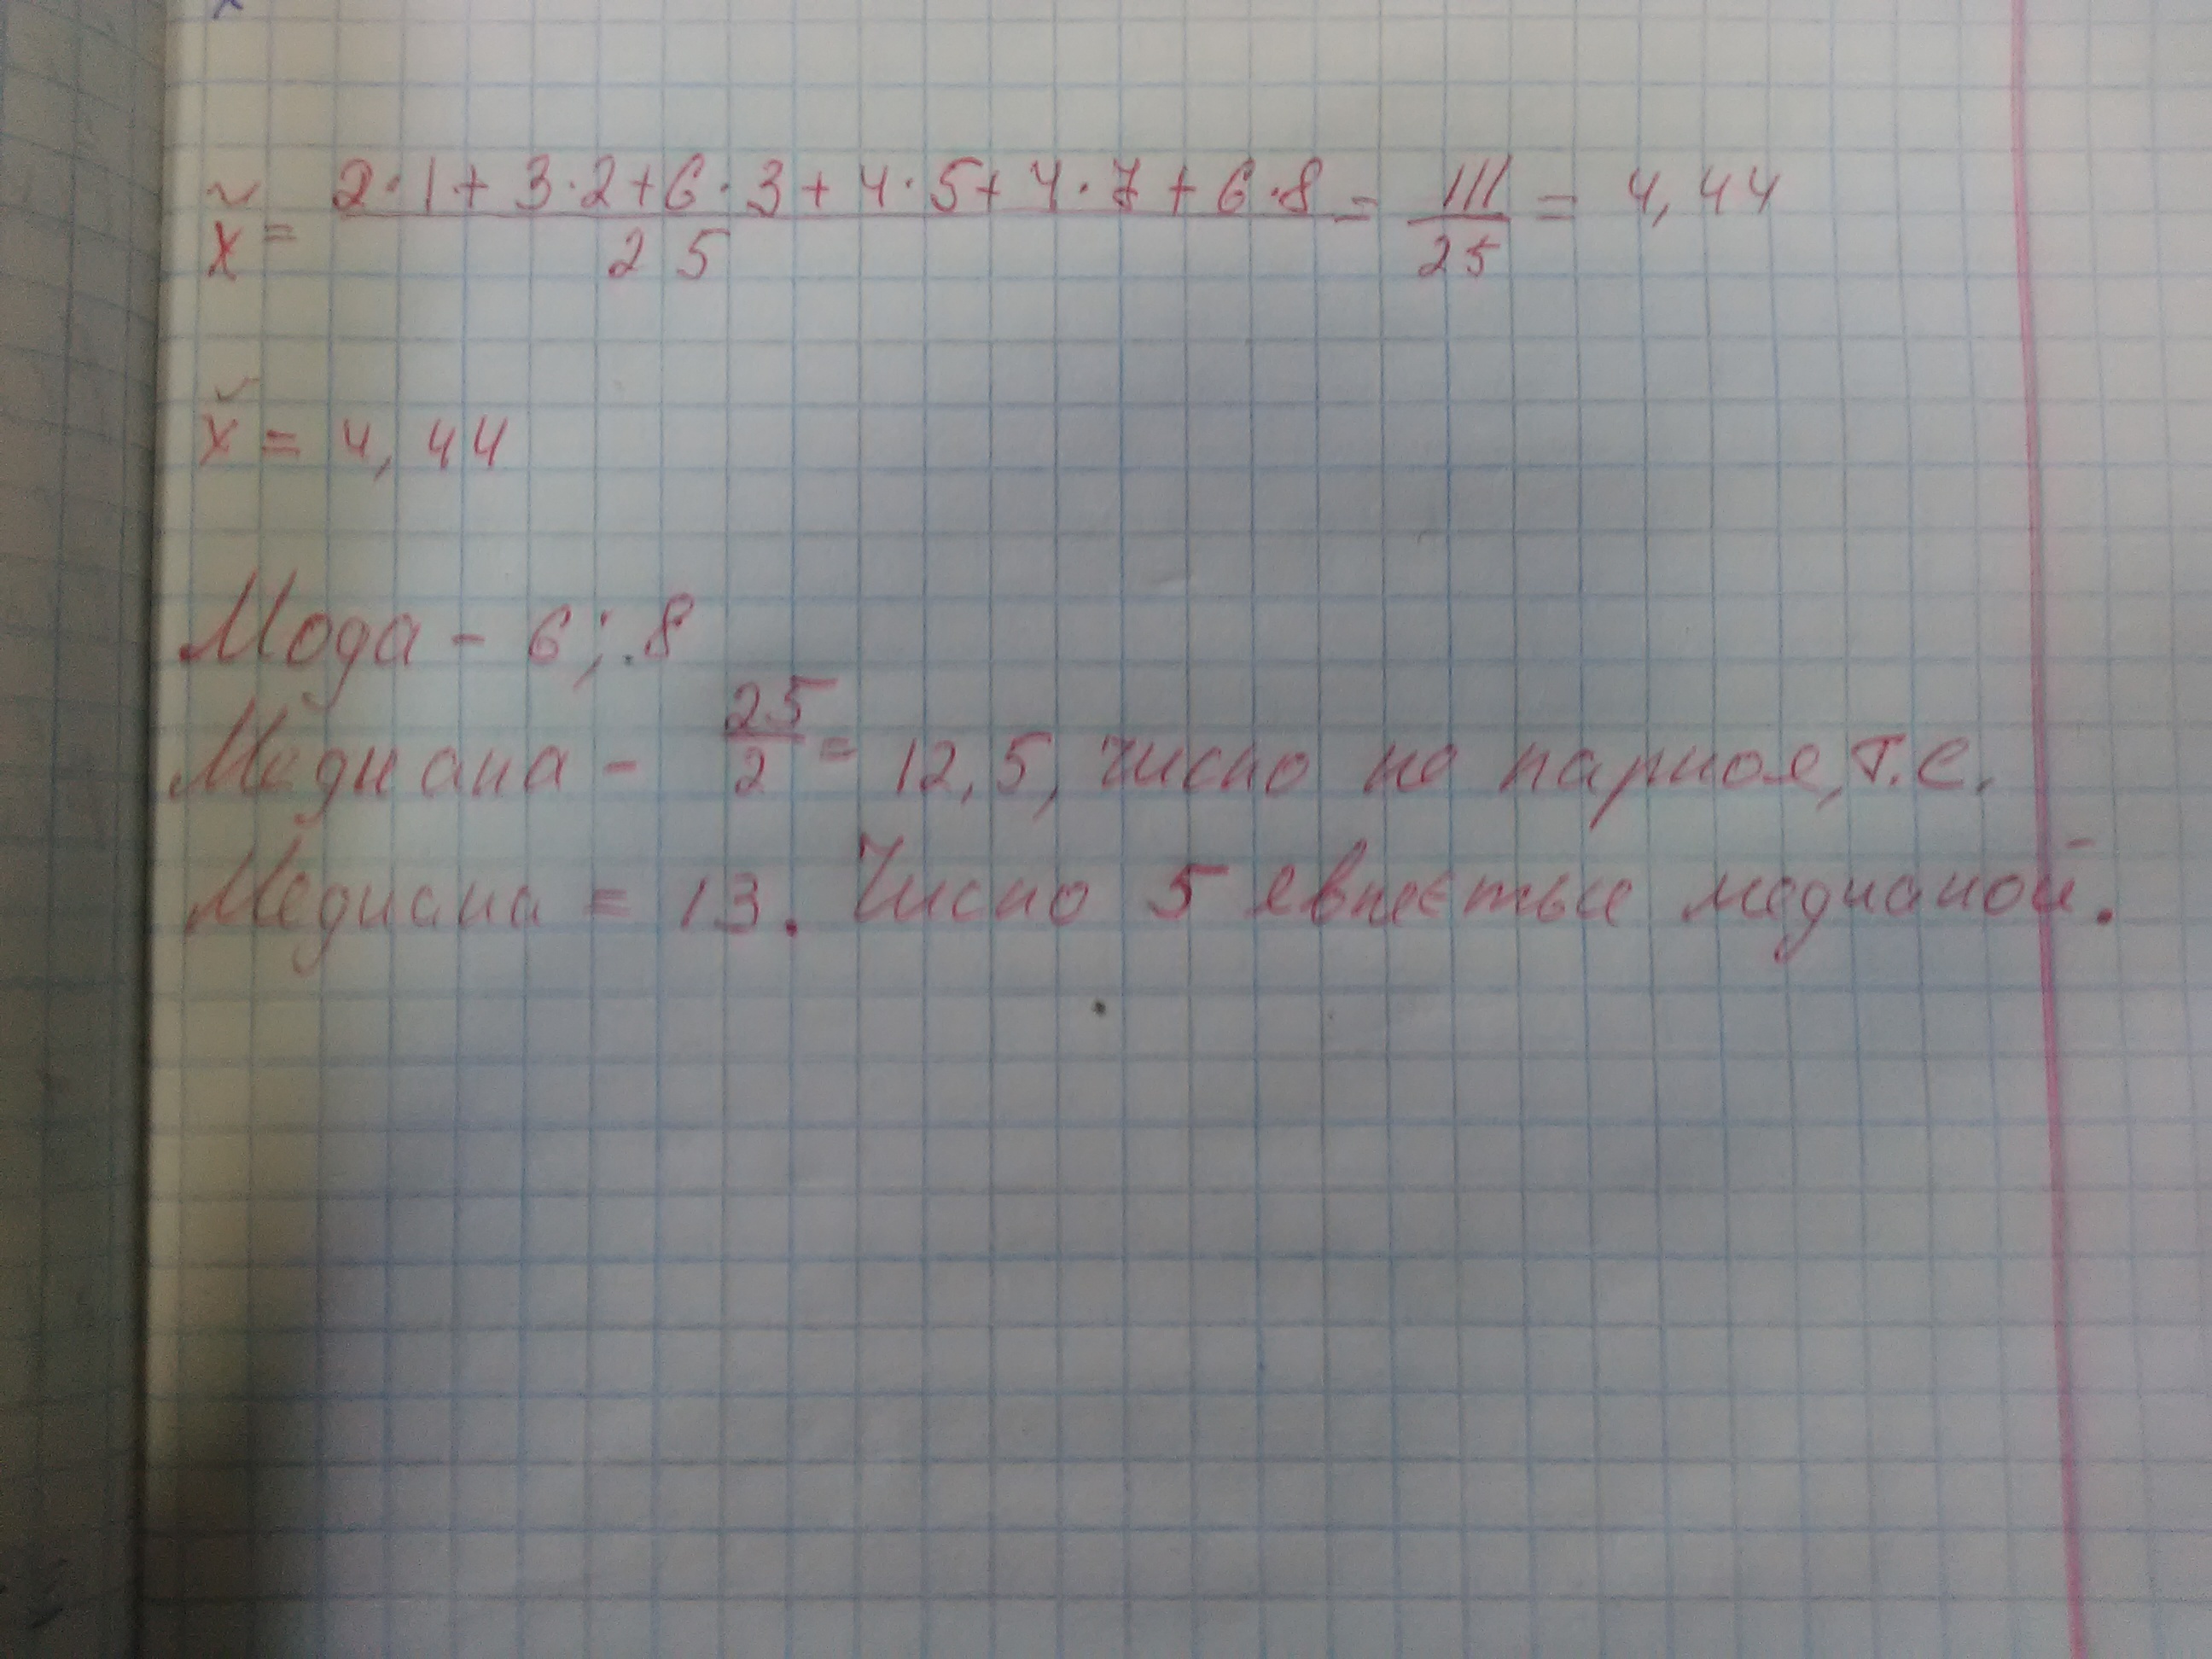 x̃ = (2·1+3·2+6·3+4·5+4·7+6·8)/25 = 111/25 = 4,44
x̆ = 4,44
Мода - 6; 8
Медиана - 25/2 = 12,5, число не парное, т.е.
Медиана = 13. Число 5 евлестьсе медианой.